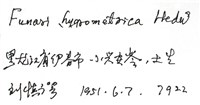 Funaria hygrometrica Hedw
黑龙江省伊春市 小兴安岭, 土生
刘 1951.6.7. 7922